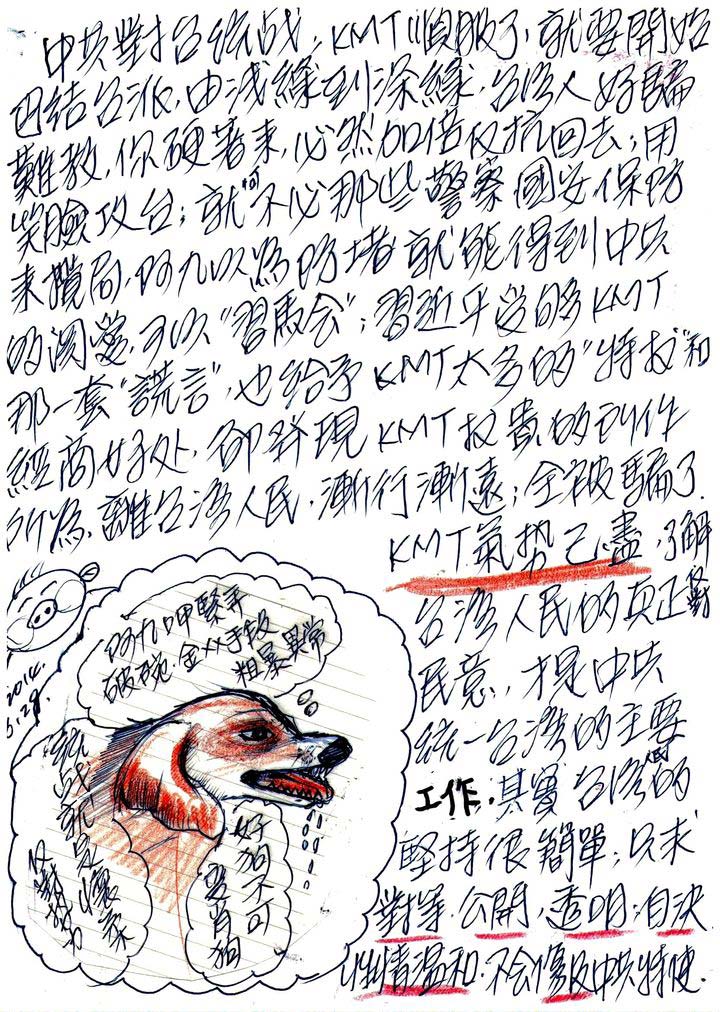 中共對台統战，KMT順服了，就要開始
巴結台派，由浅綠到深綠，台湾人好騙
難教，你硬著来，必然加倍反抗回去；用
笑臉攻台；就可不必那些警察國安保防
来攪局，阿九以為防堵就能得到中共
的関愛，可以"習馬会"；習近平受够KMT
那一套"謊言"，也给予KMT太多的"特权"和
經商好处，卻發現KMT权貴的所作
所為，離台湾人民，漸行漸遠；全被騙了.
KMT.氣势已盡，了解
台湾人民的真正
民意，才是中共
統一台湾的主要
工作.其實台湾的
堅持很簡單；只求
對等.公開，透明；自决
性情温和.不会傷及中共特使.
2014.
阿九呷緊弄
破碗.金双手段
粗暴異常
統战就是讓家
好狗不可
變肖狗